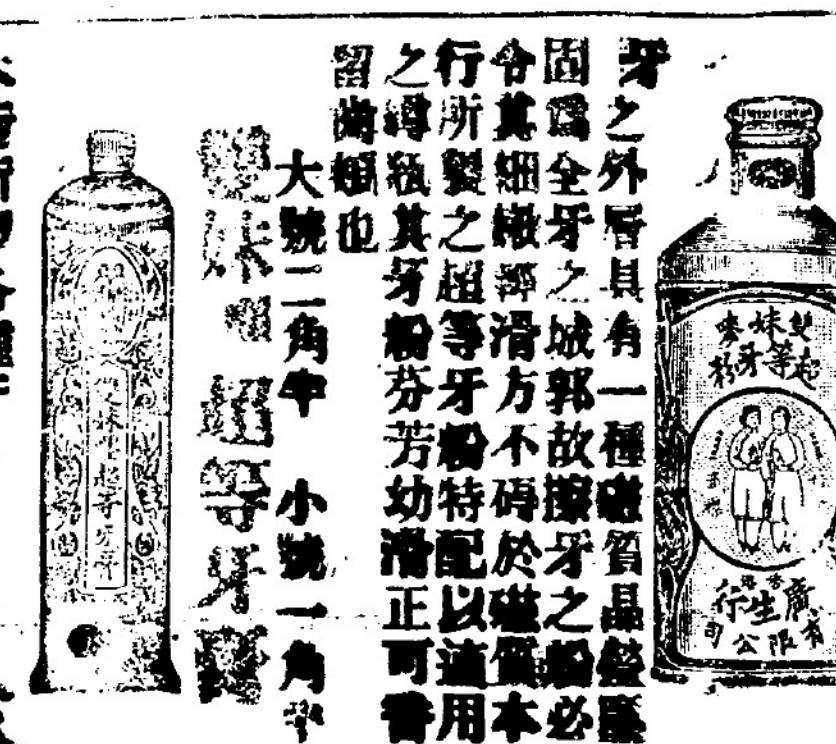 雙妹嘜
超等牙粉
廣生行
有限公司
牙之外層具有一種磁質晶瑩堅
固爲全牙之城郭故擦牙之粉必
令其細嫩滑方不碍於磁質本
行所製之超等牙粉特配以適用
之樽瓶其牙粉芬芳幼滑正可香
留齒頰也
大號二角半 小號一角半
妹超等牙